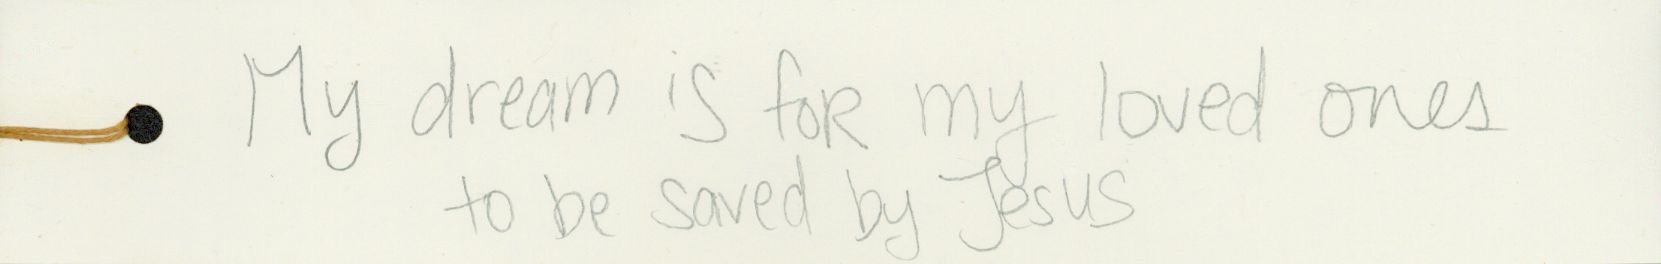 My dream is for my loved ones
to be saved by Jesus